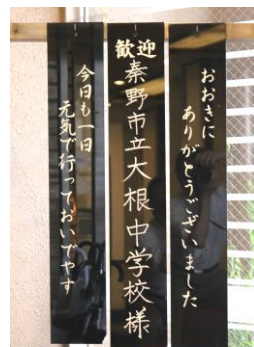 おおきに
ありがとうございました
歓迎
秦野市立大根中学校様
今日も一日
元気で行っておいでやす